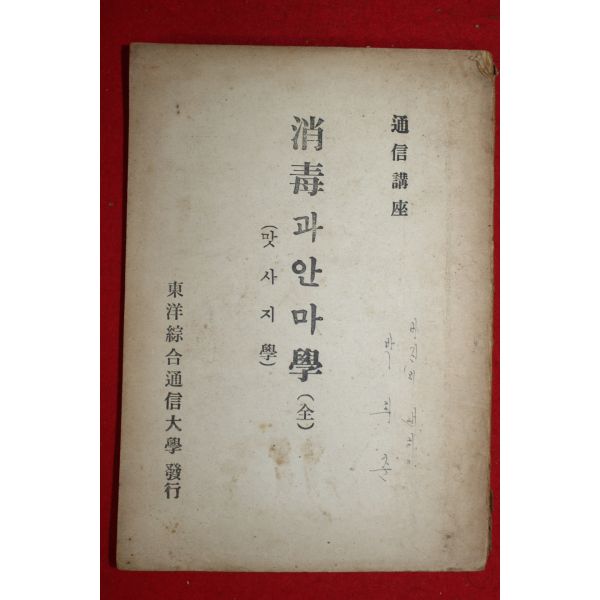 通信講座
消毒과안마學(全)
(맛사지學)
東洋綜合通信大學 發行